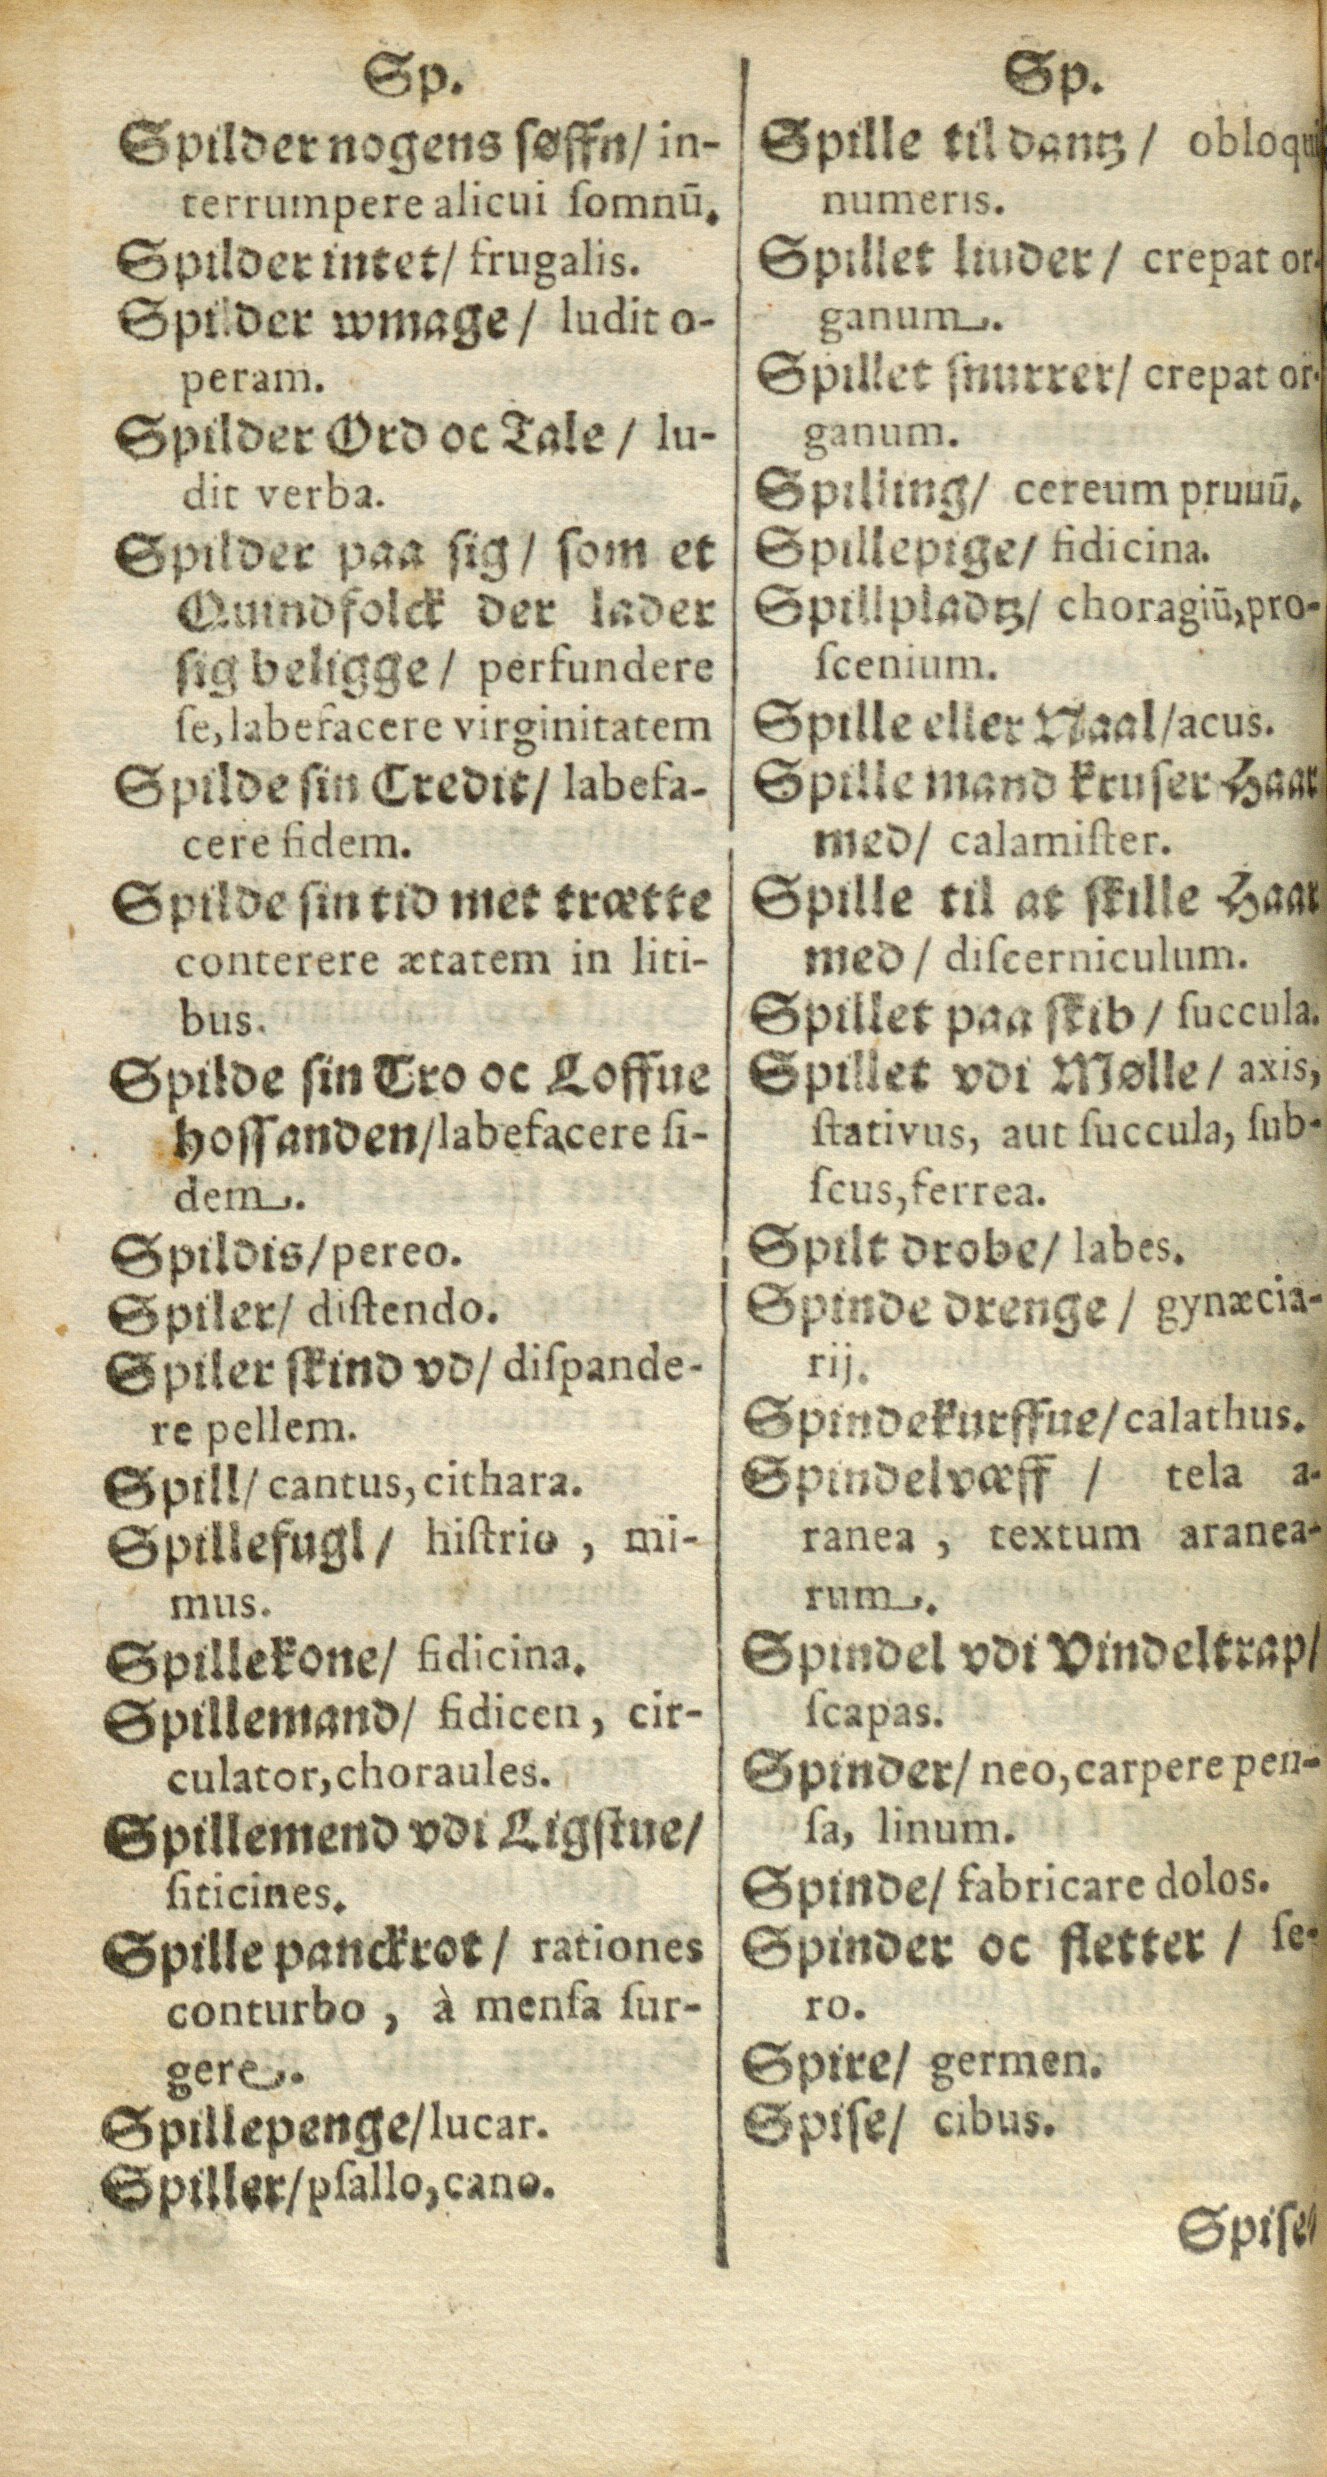 Sp.
Spilder nogens søffn/ in-
terrumpere alicui ſomnū.
Spilder intet/ frugalis.
Spilder wmage/ ludit o-
peram.
Spilder Ord oc Tale/ lu-
dit verba.
Spilder paa ſig/ ſom et
Quindfolck der lader
ſig beligge/ perfundere
ſe, labefacere virginitatem
Spilde ſin Credit/ labefa-
cere fidem.
Spilde ſin tid met trætte
conterere ætatem in liti-
bus.
Spilde ſin Tro oc Loffue
hoſſanden/labefacere fi-
dem.
Spildis/pereo.
Spiler/ diſtendo.
Spiler ſkind vd/ diſpande-
re pellem.
Spill/ cantus, cithara.
Spillefugl/ hiſtrio, mi-
mus.
Spillekone/ fidicina.
Spillemand/ fidicen, cir-
culator, choraules.
Spillemend vdi Ligſtue/
ſiticines.
Spille panckrot/ rationes
conturbo, à menſa ſur-
gere.
Spillepenge/lucar.
Spiller/pſallo, cano.
Sp.
Spille til dantz/ obloqui
numeris.
Spillet liuder/ crepat or-
ganum.
Spillet ſnurrer/ crepat or-
ganum.
Spilling/ cereum prunū.
Spillepige/ fidicina.
Spillpladtz/ choragiū, pro-
ſcenium.
Spille eller Naal/acus.
Spille mand kruſer Haar
med/ calamiſter.
Spille til at ſkille Haar
med/ diſcerniculum.
Spillet paa ſkib/ ſuccula.
Spillet vdi Mølle/ axis,
ſtativus, aut ſuccula, ſub-
ſcus, ferrea.
Spilt drobe/ labes.
Spinde drenge/ gynæcia-
rij.
Spindekurffue/calathus.
Spindelvæff/ tela a-
ranea, textum aranea-
rum.
Spindel vdi Vindeltrap/
ſcapas.
Spinder/ neo, carpere pen-
ſa, linum.
Spinde/ fabricare dolos.
Spinder oc fletter/ ſe-
ro.
Spire/ germen.
Spiſe/ cibus.
Spiſe/